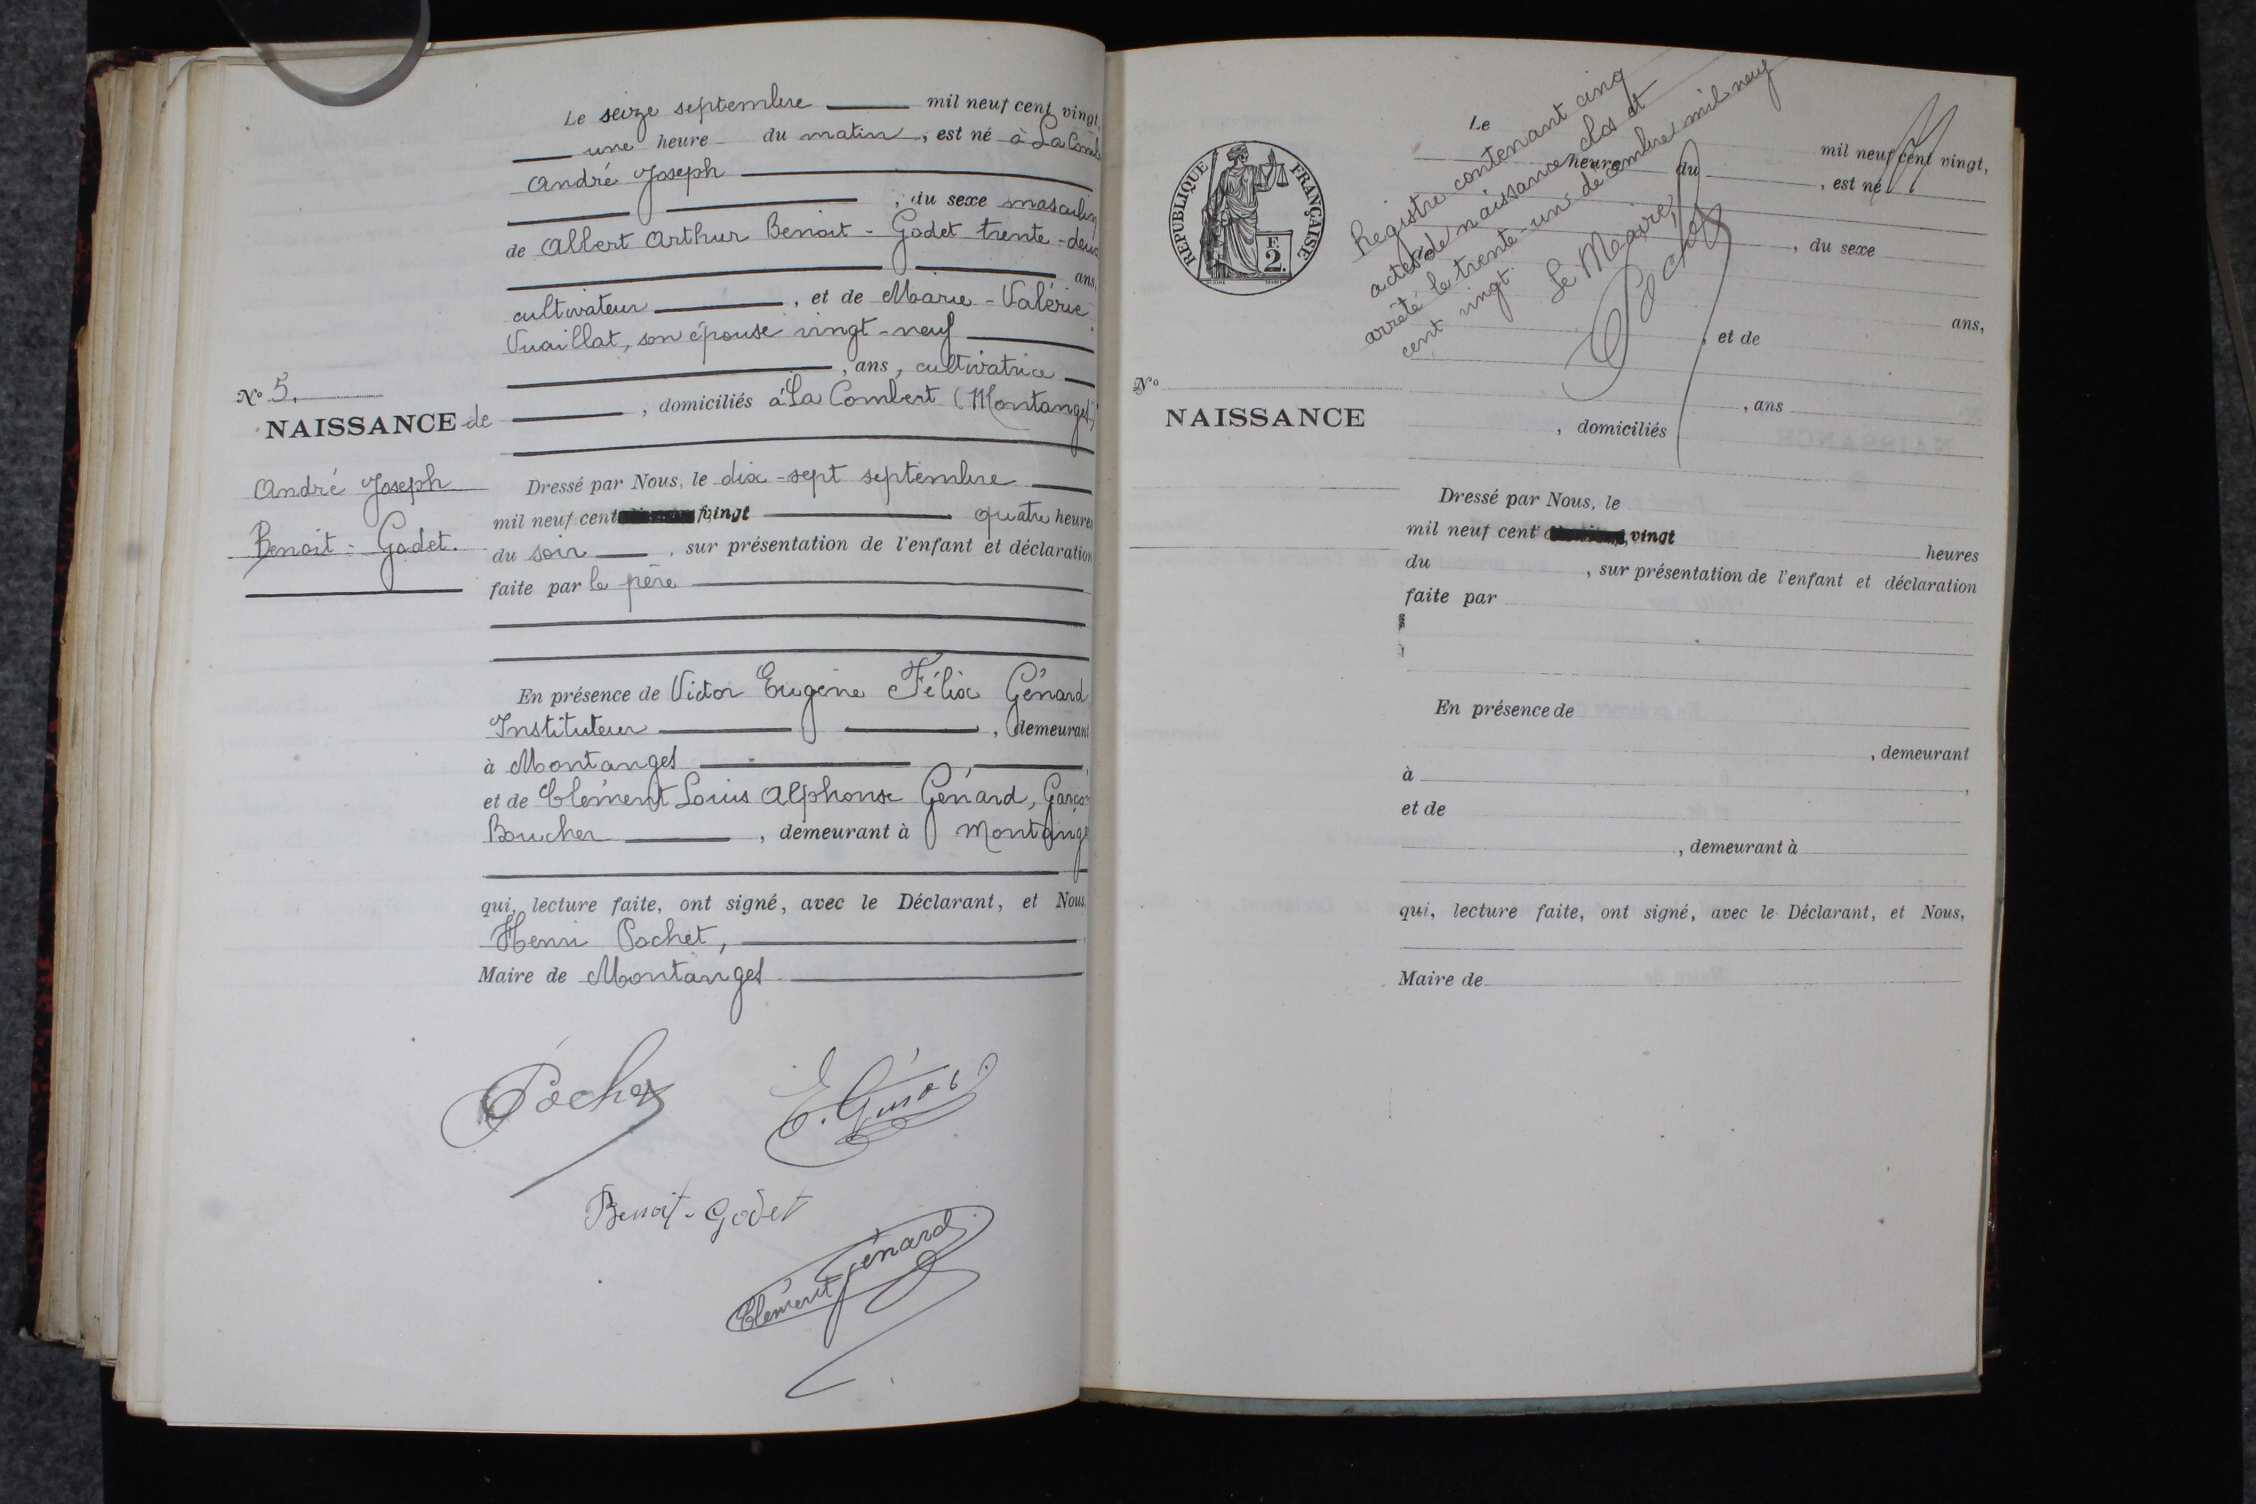 Le seize septembre mil neuf cent vingt,
une heure du matin, est né à La Comb
André Joseph
, du sexe masculin
de Albert Arthur Benoit - Godet trente - deux
ans,
cultivateur , et de Marie - Valérie
Vuaillat, son épouse vingt-neuf
, ans, cultivatrice
, domiciliés à La Combert (Montanges)
Nº 5.
NAISSANCE de
André Joseph
Benoit - Godet.
Dressé par Nous, le dix-sept septembre
mil neuf cent vingt quatre heures
du soir , sur présentation de l'enfant et déclaration
faite par le père
En présence de Victor Eugène Félix Génard
Instituteur , demeurant
à Montanges
et de Clément Louis Alphonse Génard, Garçon
Boucher , demeurant à Montange
qui, lecture faite, ont signé, avec le Déclarant, et Nous,
Henri Pochet,
Maire de Montanges
Pochet
E. Génard
Benoit-Godet
Clément Génard
REPUBLIQUE FRANÇAISE
F.
2.
Registre contenant cinq
actes de naissance clos et
arrêté le trente-un décembre mil neuf
cent vingt.
Le Maire,
Pochet
Le mil neuf cent vingt,
heure du , est né
, du sexe
de
ans,
, et de
, ans
, domiciliés
Nº
NAISSANCE
Dressé par Nous, le
mil neuf cent vingt heures
du , sur présentation de l'enfant et déclaration
faite par
En présence de
, demeurant
à ,
et de
, demeurant à
qui, lecture faite, ont signé, avec le Déclarant, et Nous,
Maire de